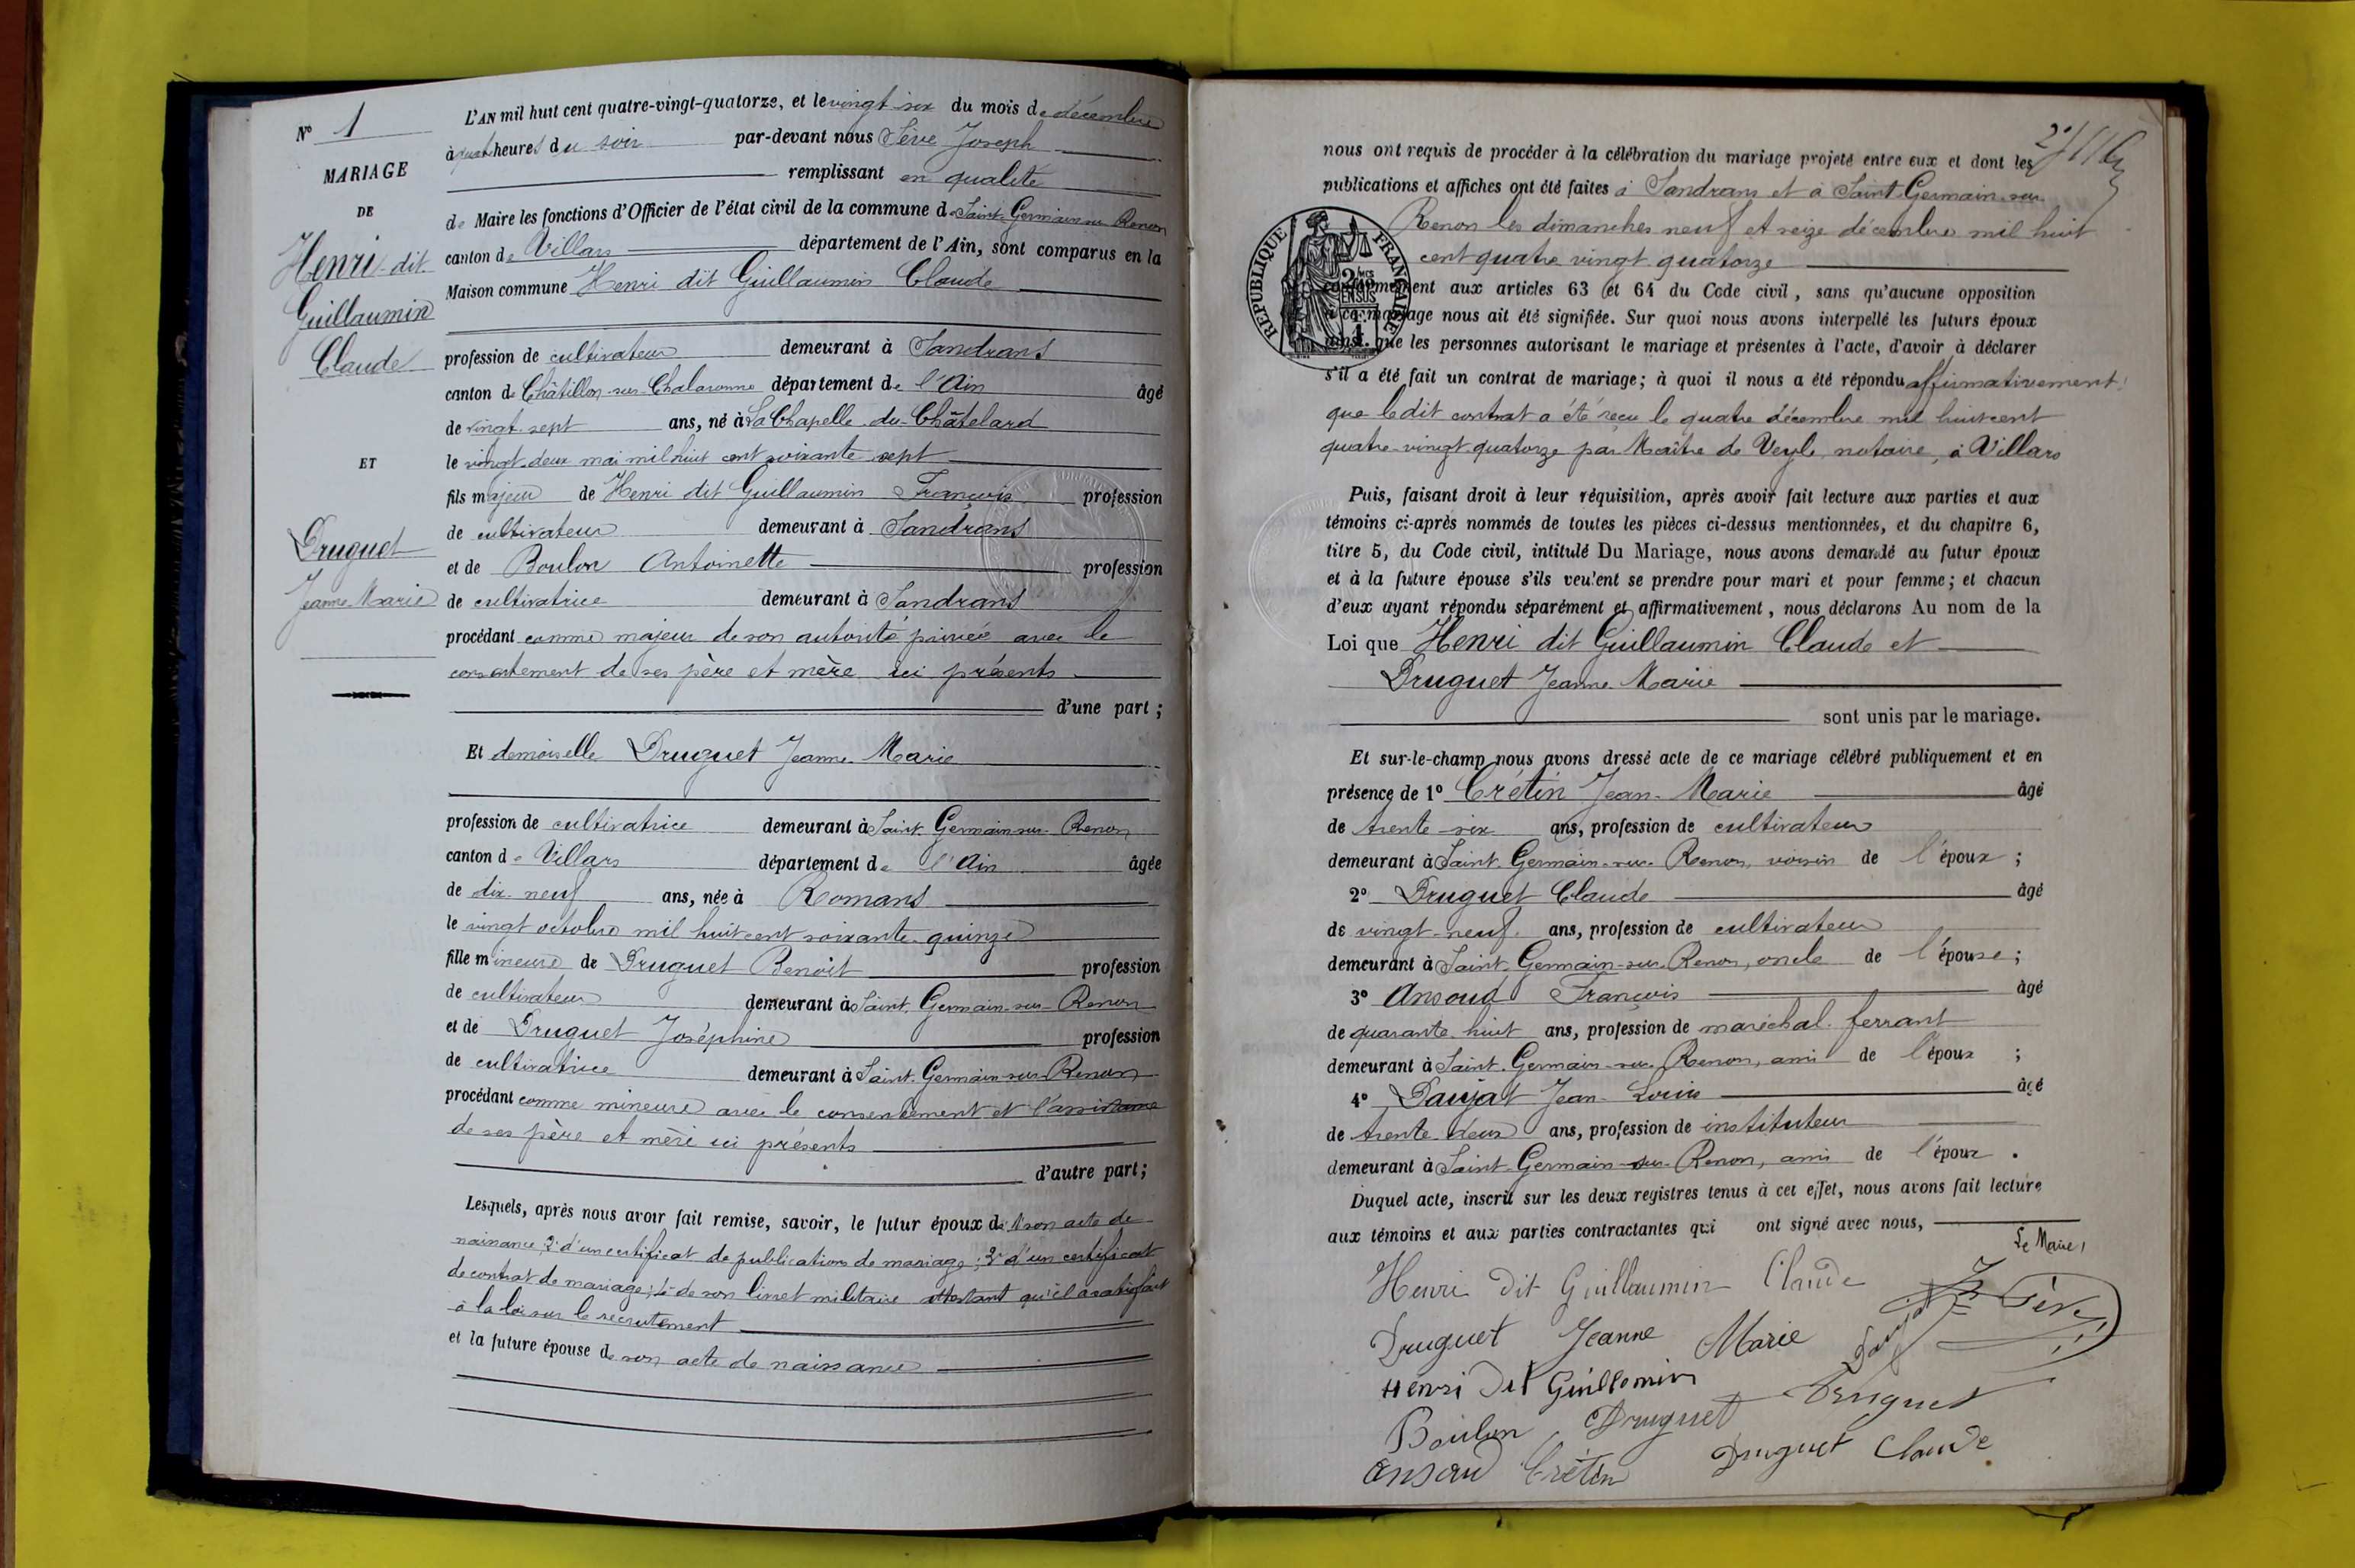 N° 1
MARIAGE
DE
Henri dit
Guillaumin
Claude
ET
Druguet
Jeanne Marie
L'AN mil huit cent quatre-vingt-quatorze, et le vingt six du mois de décembre
à quatre heures du soir par-devant nous Sève Joseph
remplissant en qualité
de Maire les fonctions d'Officier de l'état civil de la commune de Saint-Germain-sur-Renon
canton de Villars département de l'Ain, sont comparus en la
Maison commune Henri dit Guillaumin Claude
profession de cultivateur demeurant à Sandrans
canton de Châtillon-sur-Chalaronne département de l'Ain âgé
de vingt-sept ans, né à La Chapelle-du-Châtelard
le vingt-deux mai mil huit cent soixante sept
fils majeur de Henri dit Guillaumin François profession
de cultivateur demeurant à Sandrans
et de Boulon Antoinette profession
de cultivatrice demeurant à Sandrans
procédant comme majeur de son autorité privée avec le
consentement de ses père et mère ici présents
d'une part ;
Et demoiselle Druguet Jeanne-Marie
profession de cultivatrice demeurant à Saint-Germain-sur-Renon
canton de Villars département de l'Ain âgée
de dix-neuf ans, née à Romans
le vingt octobre mil huit cent soixante-quinze
fille mineure de Druguet Benoit profession
de cultivateur demeurant à Saint-Germain-sur-Renon
et de Druguet Joséphine profession
de cultivatrice demeurant à Saint-Germain-sur-Renon
procédant comme mineure avec le consentement et l'assistance
de ses père et mère ici présents
d'autre part ;
Lesquels, après nous avoir fait remise, savoir, le futur époux de 1° son acte de
naissance, 2° d'un certificat de publications de mariage ; 3° d'un certificat
de contrat de mariage ; 4° de son livret militaire attestant qu'il a satisfait
à la loi sur le recrutement
et la future épouse de son acte de naissance
nous ont requis de procéder à la célébration du mariage projeté entre eux et dont les
publications et affiches ont été faites à Sandrans et à Saint-Germain-sur-
Renon les dimanches neuf et seize décembre mil huit
cent quatre vingt quatorze
REPUBLIQUE FRANÇAISE
conformément aux articles 63 et 64 du Code civil, sans qu'aucune opposition
à ce mariage nous ait été signifiée. Sur quoi nous avons interpellé les futurs époux
ainsi que les personnes autorisant le mariage et présentes à l'acte, d'avoir à déclarer
s'il a été fait un contrat de mariage ; à quoi il nous a été répondu affirmativement
que le dit contrat a été reçu le quatre décembre mil huit cent
quatre-vingt-quatorze par Maître de Veyle, notaire, à Villars
Puis, faisant droit à leur réquisition, après avoir fait lecture aux parties et aux
témoins ci-après nommés de toutes les pièces ci-dessus mentionnées, et du chapitre 6,
titre 5, du Code civil, intitulé Du Mariage, nous avons demandé au futur époux
et à la future épouse s'ils veulent se prendre pour mari et pour femme ; et chacun
d'eux ayant répondu séparément et affirmativement, nous déclarons Au nom de la
Loi que Henri dit Guillaumin Claude et
Druguet Jeanne-Marie
sont unis par le mariage.
Et sur-le-champ nous avons dressé acte de ce mariage célébré publiquement et en
présence de 1° Crétin Jean-Marie âgé
de trente-six ans, profession de cultivateur
demeurant à Saint-Germain-sur-Renon, voisin de l'époux ;
2° Druguet Claude âgé
de vingt-neuf ans, profession de cultivateur
demeurant à Saint-Germain-sur-Renon, oncle de l'épouse ;
3° Ansoud François âgé
de quarante huit ans, profession de maréchal-ferrant
demeurant à Saint-Germain-sur-Renon, ami de l'époux ;
4° Daujat Jean-Louis âgé
de trente-deux ans, profession de instituteur
demeurant à Saint-Germain-sur-Renon, ami de l'époux .
Duquel acte, inscrit sur les deux registres tenus à cet effet, nous avons fait lecture
aux témoins et aux parties contractantes qui ont signé avec nous,
Le Maire,
Henri Dit Guillaumin Claude
Sève
Druguet Jeanne Marie
Henri Dit Guillemin
Druguet
Boulon Druguet
Druguet Claude
Ansoud Crétin